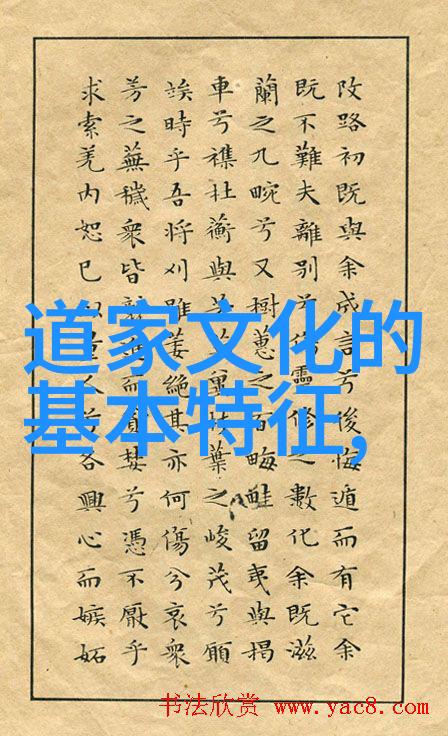 攺路初既與余成言兮後悔遁而有它余
既不難夫離別兮靈修之數化余既滋
蘭之九畹兮又樹蕙之百畮畦留夷與揭
車兮襍杜蘅與葉之峻茂兮願
竢時乎吾將刈雖萎絕其亦何傷兮哀衆
芳之蕪穢衆皆而貪婪兮憑不厭乎
求索羌內恕己各興心而嫉妬
道家文化的
基本特征,
书法欣赏 www.yac8.com